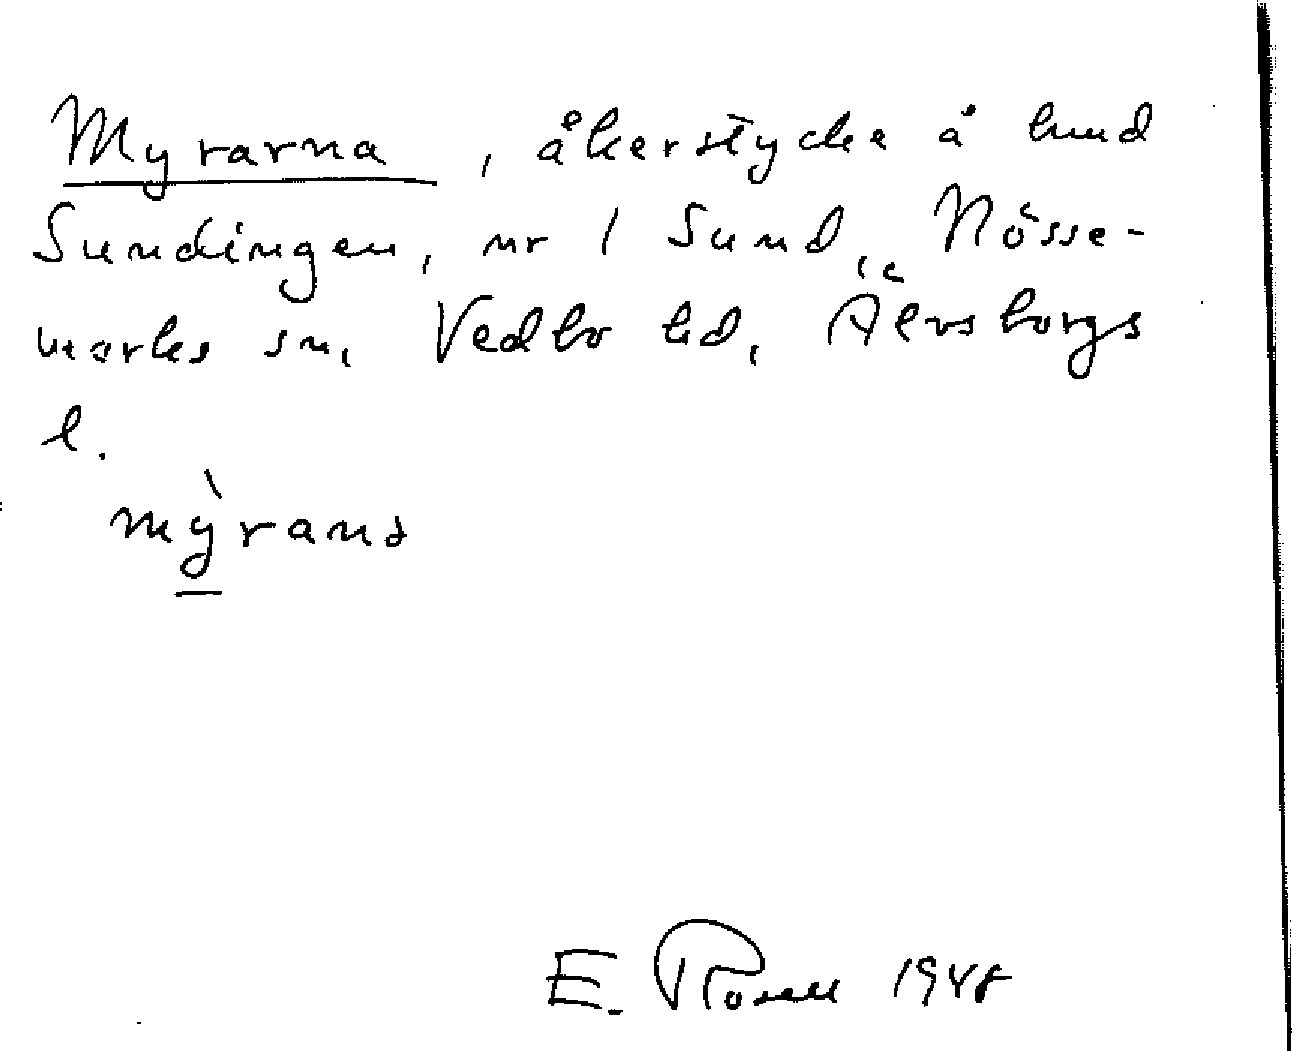 Myrarna, åkerstycke å hmd
Sundingen, nr 1 Sund, Nösse-
marks sn, Vedbo hd, Älvsborgs
l.
mỳranə
E. Rosell 1948